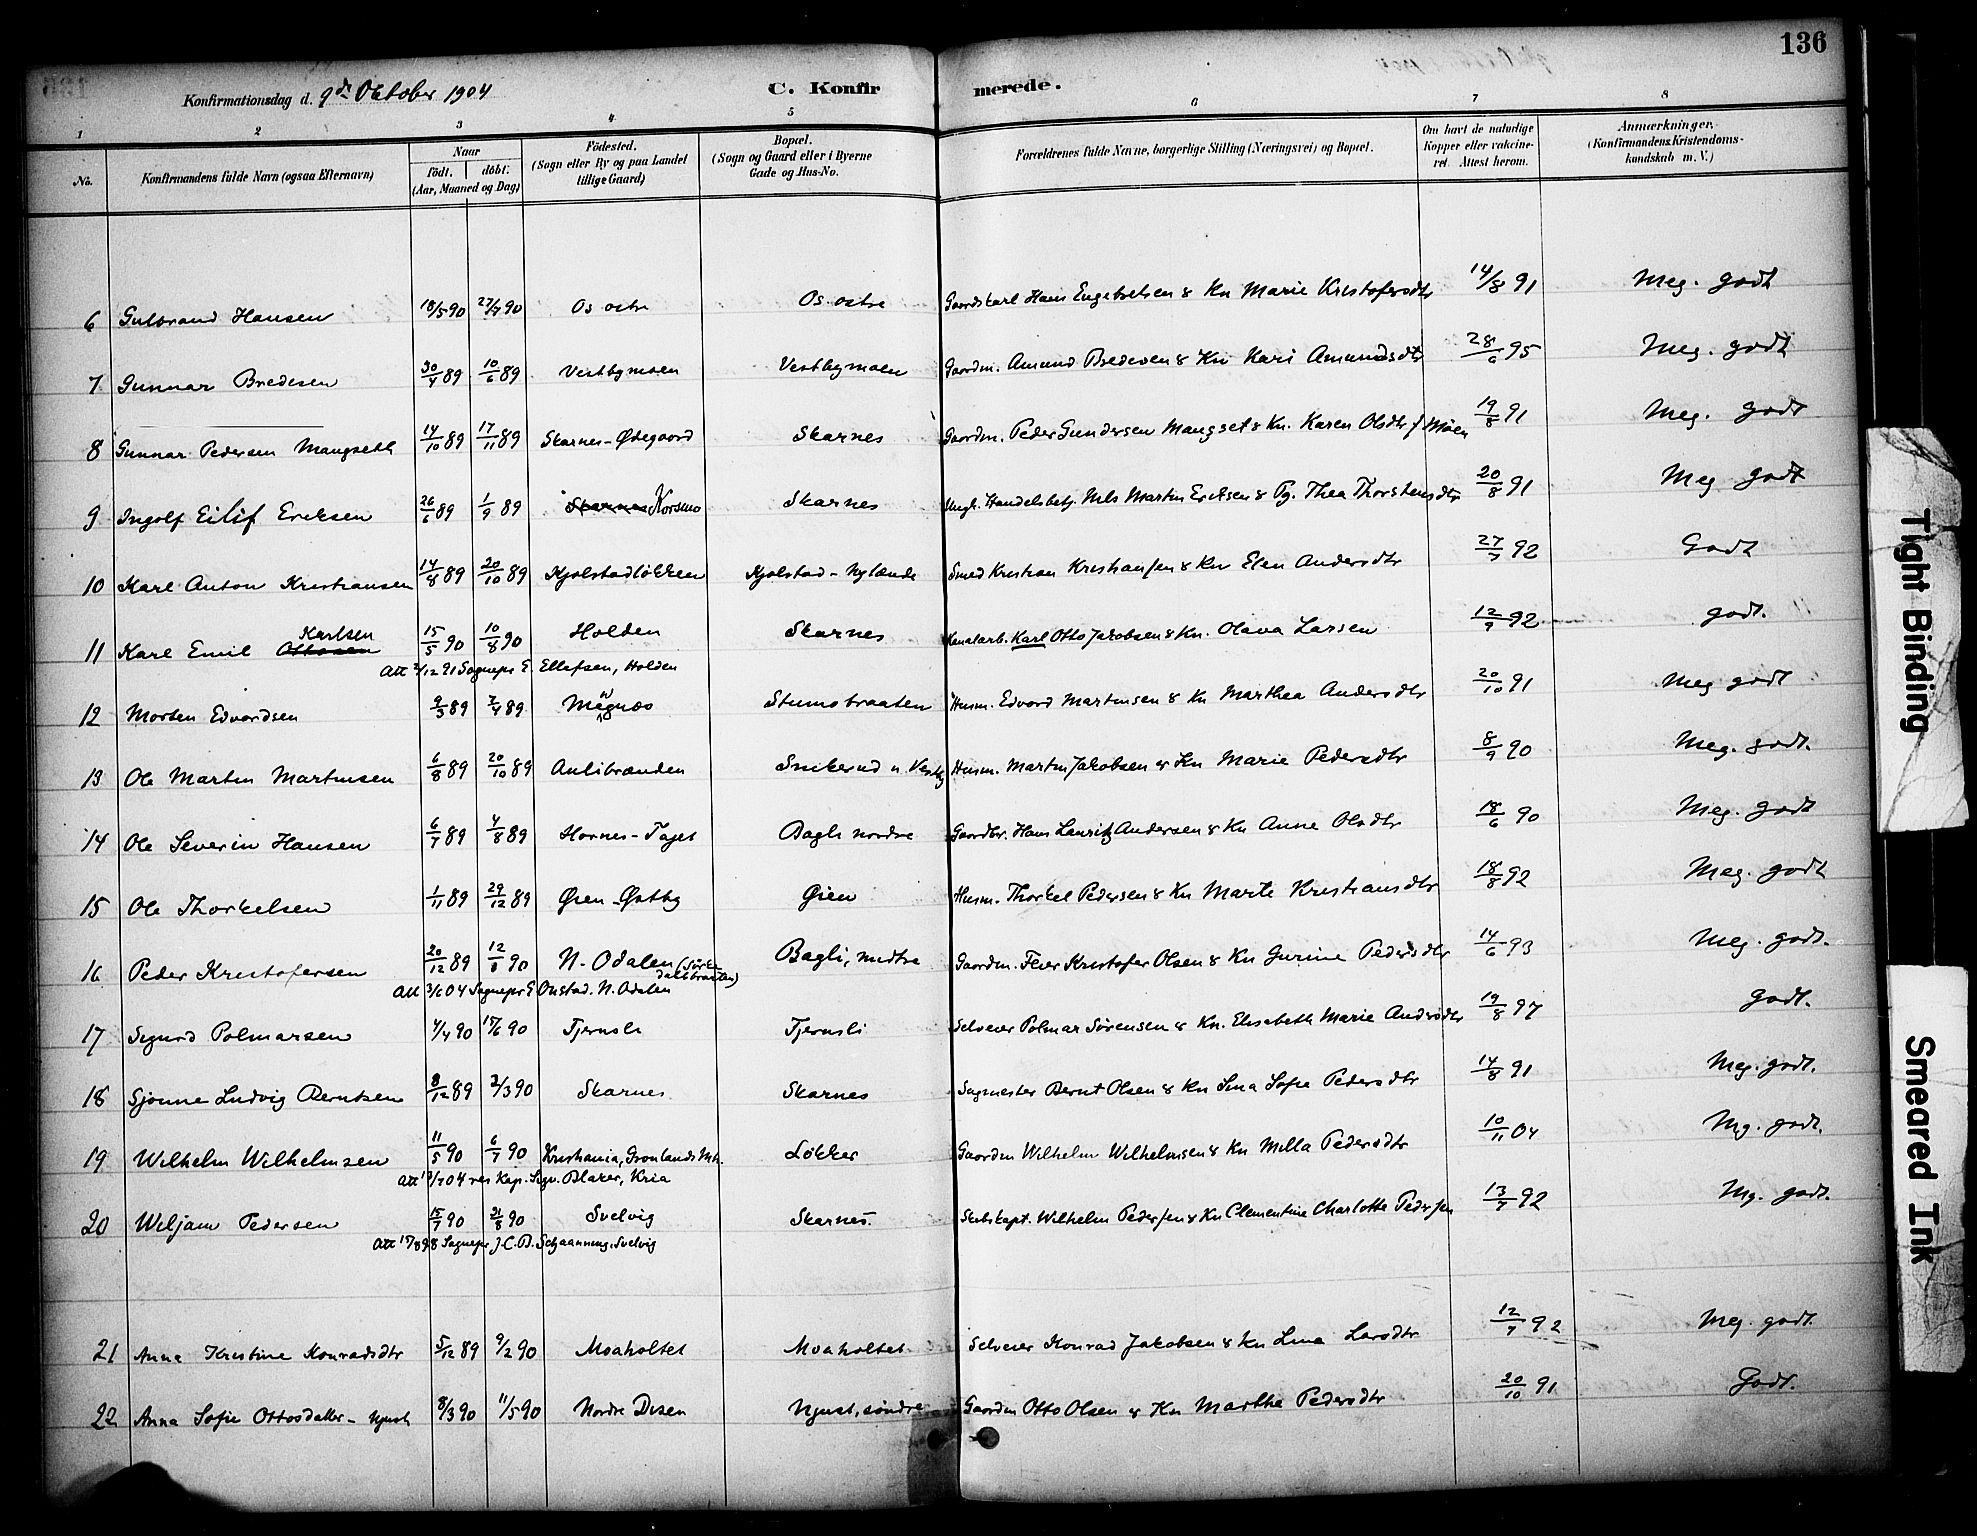 136
Konfirmationsdag d. 9de Oktober 1904 C. Konfirmerede.
1 2 3 4 5 6 7 8
No. Konfirmandens fulde Navn (ogsaa Efternavn) Naar födt. döbt. (Aar, Maaned og Dag) Födested. (Sogn eller By og paa Landet tillige Gaard) Bopæl. (Sogn og Gaard eller i Byerne Gade og Hus-No. Forældrenes fulde Navne, borgerlige Stilling (Næringsvei) og Bopæl. Om havt de naturlige Kopper eller vakcineret. Attest herom. Anmærkninger. (Konfirmandens Kristendomskundskab m. V.)
6 Gulbrand Hansen 18/5 90 27/7 90 Os østre Os østre Gaardskarl Hans Engebretsen & Kn Marie Kristofersdtr 14/8 91 Meg. godt
7 Gunnar Bredesen 30/4 89 10/6 89 Vestbymoen Vestbymoen Gaardm. Amund Bredesen & Kn Kari Amundsdtr 28/6 95 Meg. godt
8 Gunnar Pedersen Mangseth 14/10 89 17/11 89 Skarnes-Ødegaard Skarnes Gaardm. Peder Gundersen Mangset & Kn. Karen Olsdtr f Moen 19/8 91 Meg. godt
9 Ingolf Eilif Eriksen 26/6 89 1/9 89 Skarnes Korsmo Skarnes Ungk. Handelsbetj. Nils Martin Eriksen & Pg. Thea Thorstensdtr 20/8 91 Meg godt
10 Karl Anton Kristiansen 14/8 89 20/10 89 Kjølstadløkken Kjølstad-nylænde Smed Kristian Kristiansen & Kn Elen Andersdtr 27/7 92 Godt
11 Karl Emil Ottosen Karlsen 15/5 90 10/8 90 Holden Skarnes Kanalarb. Karl Otto Jakobsen & Kn. Olava Larsen 12/7 92 godt.
Att 2/12 91 Sognepr E. Ellefsen, Holden
12 Morten Edvardsen 9/3 89 7/4 89 Stumobraaten Husm. Edvard Martinsen & Kn Marthea Andersdtr 20/10 91 Meg godt
13 Ole Martin Martinsen 6/8 89 20/10 89 Aulibranden Snekerud u Vestby Husm. Martin Jakobsen & Kn Marie Pedersdtr 8/9 90 Meg. godt.
14 Ole Severin Hansen 6/7 89 4/8 89 Hornes-Taget Bagli nordre Gaardbr. Hans Lauritz Andersen & Kn Anne Olsdtr 18/6 90 Meg. godt
15 Ole Thorkelsen 1/11 89 29/12 89 Øien-Østby Øien Husm. Thorkel Pedersen & Kn Marte Kristiansdtr 18/8 92 Meg. godt
16 Peder Kristofersen 20/12 89 12/8 90 N. Odalen Bagli, midtre Gaardm. Kristofer Olsen & Kn Gurine Pedersdtr 14/6 93 Meg. godt.
Att 3/6 04 Sognepr E Onstad. N. Odalen
17 Sigurd Polmarsen 4/4 90 15/6 90 Tjernsli Tjernsli Selveier Polmar Sørensen & Kn. Elisabeth Marie Andersdtr 19/8 97 Godt.
18 Sjønne Ludvig Berntsen 8/12 89 2/3 90 Skarnes Skarnes Sagmester Bernt Olsen & Kn Lina Sofie Pedersdtr 14/8 91 Meg. godt.
19 Wilhelm Wilhelmsen 11/5 90 6/7 90 Kristiania, Grønlands Mh. Løkker Gaardm Wilhelm Wilhelmsen & Kn Milla Pedersdtr 10/11 04 Mg. godt.
Att 13/7 04 res Kap. Sigv. Blaker, Kria
20 Wiljam Pedersen 15/7 90 31/8 90 Svelvig Skarnes. Skibskapt. Wilhelm Pedersen & Kn Clementine Charlotte Pedersen 13/7 92 Mg. godt.
Att 15/8 98 Sognepr J. C. B. Schaanning, Svelvig
21 Anna Kristine Konradsdtr 5/12 89 9/2 90 Moaholtet Moaholtet Selveier Konrad Jakobsen & Kn Lina Larsdtr 12/7 92 Meg. godt.
22 Anna Sofie Ottosdatter- njust 8/3 90 11/5 90 Nordre Disen Njust, søndre Gaardm Otto Olsen & Kn Marthe Pedersdtr 20/10 91 Godt.
Tight Binding
Smeared Ink